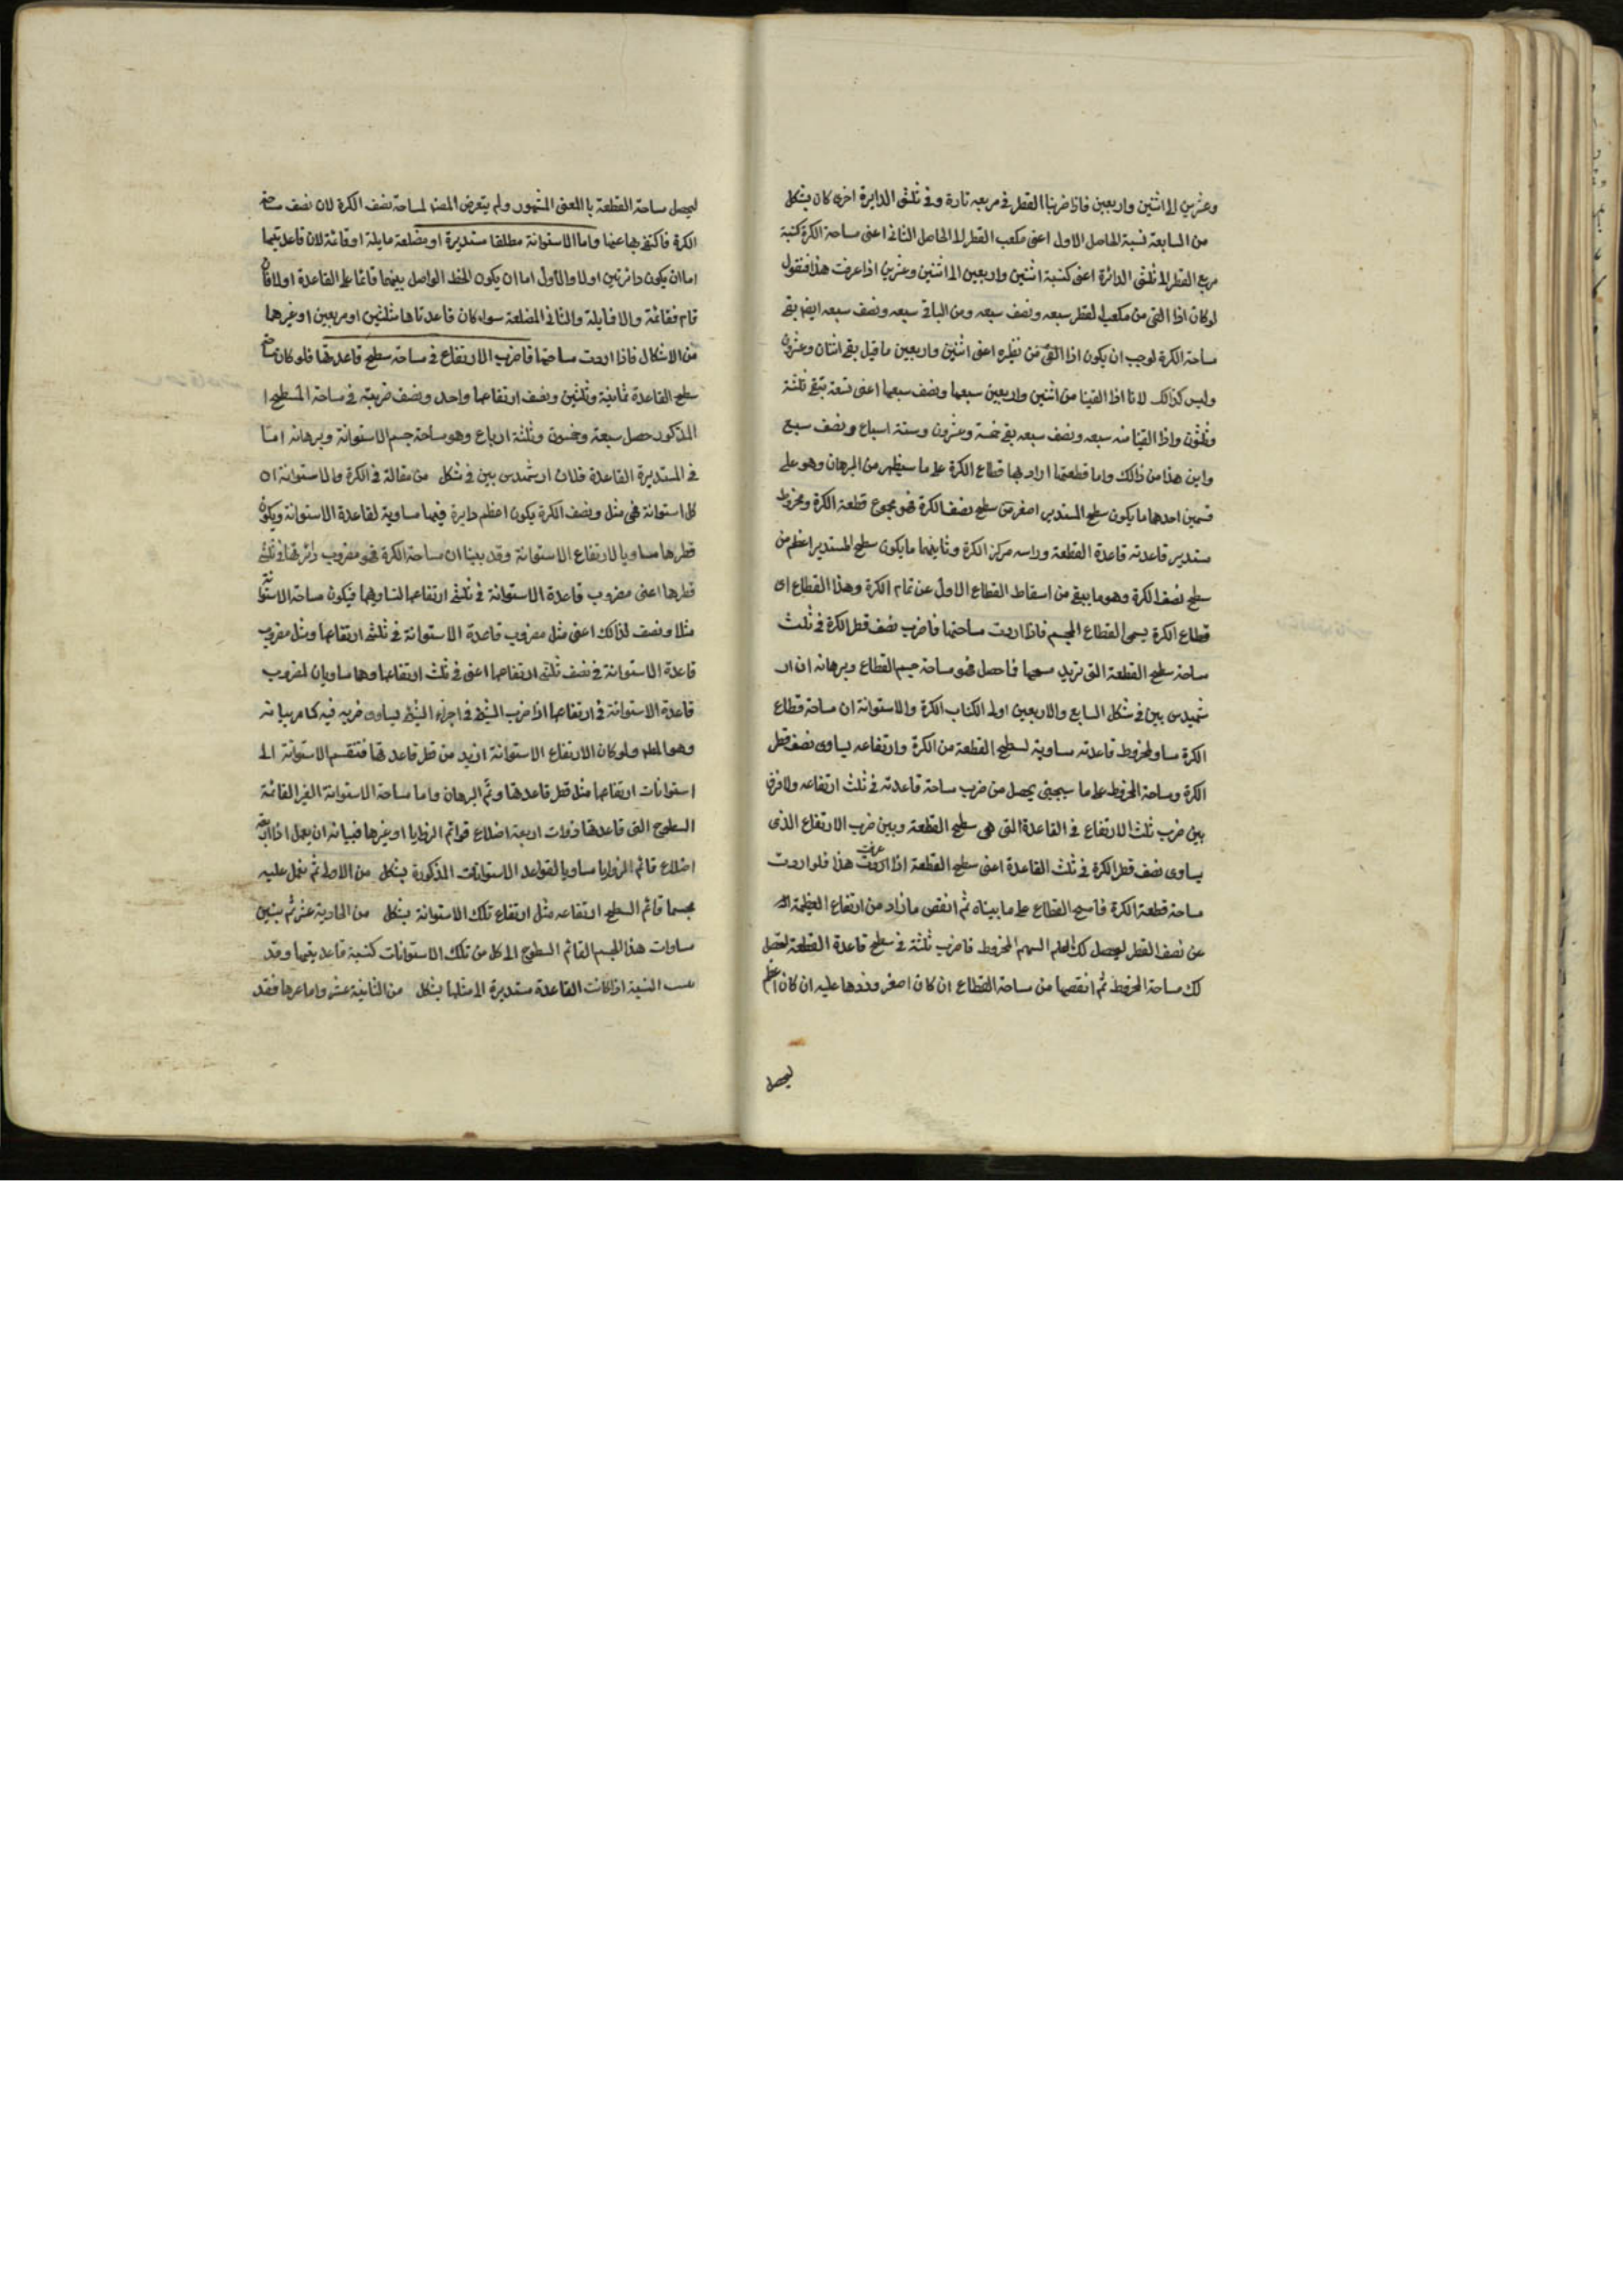 وعشرين الى اثنتين واربعين فاذا ضربنا القطر فى مربعه تارة وفى ثلثى الدايرة اخرى كان بشكل
من السابعة نسبة الحاصل الاول اعنى مكعب القطر الى الحاصل الثانى اعنى مساحة الكرة كنسبة
مربع القطر الى ثلثى الدائرة اعنى كنسبة اثنتين واربعين الى اثنتين وعشرين اذا عرفت هذا فنقول
لو كان اذا القى من مكعب القطر سبعه ونصف سبعه ومن الباقى سبعه ونصف سبعه ايضا بقى
مساحة الكرة لوجب ان يكون اذا القى من نظيره اعنى اثنتين واربعين ما قيل بقى اثنتان وعشرون
وليس كذلك لانا اذا القينا من اثنتين واربعين سبعها ونصف سبعها اعنى تسعة تبقى ثلثة
وثلثون واذا القينا منه سبعه ونصف سبعه بقى خمسة وعشرون وستة اسباع ونصف سبع
واين هذا من ذالك واما قطعتها اراد بها قطاع الكرة على ما سيظهر من البرهان وهو على
قسمين احدهما ما يكون سطح المستدير اصغر من سطح نصف الكرة فهو مجموع قطعة الكرة ومخروط
مستدير قاعدته قاعدة القطعة وراسه مركز الكرة وثانيهما ما يكون سطح المستدير اعظم من
سطح نصف الكرة وهو ما يبقى من اسقاط القطاع الاول عن تمام الكرة وهذا القطاع اى
قطاع الكرة يسمى القطاع المجسم فاذا اردت مساحتها فاضرب نصف قطر الكرة فى ثلث
مساحة سطح القطعة التى تريد مسحها فما حصل فهو مساحة جسم القطاع وبرهانه ان ار
شميدس بين فى شكل السابع والاربعين اولى الكتاب الكرة والاستوانة ان مساحة قطاع
الكرة مساو لمخروط قاعدته مساوية لسطح القطعة من الكرة وارتفاعه يساوى نصف قطر
الكرة ومساحة المخروط على ما سيجيئ يحصل من ضرب مساحة قاعدته فى ثلث ارتفاعه ولا فرق
بين ضرب ثلث الارتفاع فى القاعدة التى هى سطح القطعة وبين ضرب الارتفاع الذى
يساوى نصف قطر الكرة فى ثلث القاعدة اعنى سطح القطعة اذا عرفت هذا فلو اردت
مساحة قطعة الكرة فامسح القطاع على ما بيناه ثم انقص ما زاد من ارتفاع العظيمة
عن نصف القطر ليحصل لك السهم المخروط فاضرب ثلثة فى سطح قاعدة القطعة ليحصل
لك مساحة المخروط ثم انقصها من مساحة القطاع ان كان اصغر وزدها عليه ان كان اعظم
ليحصل
ليحصل مساحة القطعة بالمعنى المشهور ولم يتعرض المصنف لمساحة نصف الكرة لان نصف مساحة
الكرة فاكتفى بها عنها واما الاستوانة مطلقا مستديرة او مضلعة مايلة او قائمة لان قاعدتيها
اما ان يكون دائرتين اولا والاول اما ان يكون الخط الواصل بينهما قائما على القاعدة اولا فان
قام فقائمة والا فمايلة والثانى المضلعة سواء كان قاعدتاها مثلثين او مربعين او غيرها
من الاشكال فاذا اردت مساحتها فاضرب الارتفاع فى مساحة سطح قاعدتها فلو كان مساحة
سطح القاعدة ثمانية وثلثين ونصف ارتفاعها واحد ونصف ضربته فى مساحة السطح ا
المذكور حصل سبعة وخمسون وثلثة ارباع وهو مساحة جسم الاستوانة وبرهانه اما
فى المستديرة القاعدة فلان ارشميدس بين فى شكل من مقالة فى الكرة والاستوانة ان
كل استوانة فهى مثل ونصف الكرة يكون اعظم دايرة فيها مساوية لقاعدة الاستوانة ويكون
قطرها مساويا لارتفاع الاستوانة وقد بينا ان مساحة الكرة فهو مضروب دائرتها فى ثلثى
قطرها اعنى مضروب قاعدة الاستوانة فى ثلثى ارتفاعها لتساويهما فيكون مساحة الاستوانة
مثلا ونصف لذالك اعنى مثل مضروب قاعدة الاستوانة فى ثلثى ارتفاعها ومثل مضروب
قاعدة الاستوانة فى نصف ثلثى ارتفاعها اعنى فى ثلث ارتفاعها وهما مساويان لمضروب
قاعدة الاستوانة فى ارتفاعها اذ ضرب الشيئ فى اجزاء الشيئ يساوى ضربه فيه كما مر بيانه
وهو المطلوب ولو كان الارتفاع الاستوانة ازيد من قطر قاعدتها فتقسم الاستوانة الى
استوانات ارتفاعها مثل قطر قاعدتها وتم البرهان واما مساحة الاستوانة الغير القائمة
السطوح التى قاعدتها ذوات اربعة اضلاع قوائم الزوايا او غيرها فبيانه ان يعمل اذا اربعة
اضلاع قائم الزوايا مساويا لقواعد الاستوانات المذكورة بشكل من الاولى ثم نعمل عليه
مجسما قائم السطح ارتفاعه مثل ارتفاع تلك الاستوانة بشكل من الحادية عشر ثم نبين
مساوات هذا المجسم القائم السطوح الى كل من تلك الاستوانات كنسبة قاعديتهما وقد
النسبة اذا كانت القاعدة مستديرة الى مثلها بشكل من الثانية عشر واما غيرها فقد